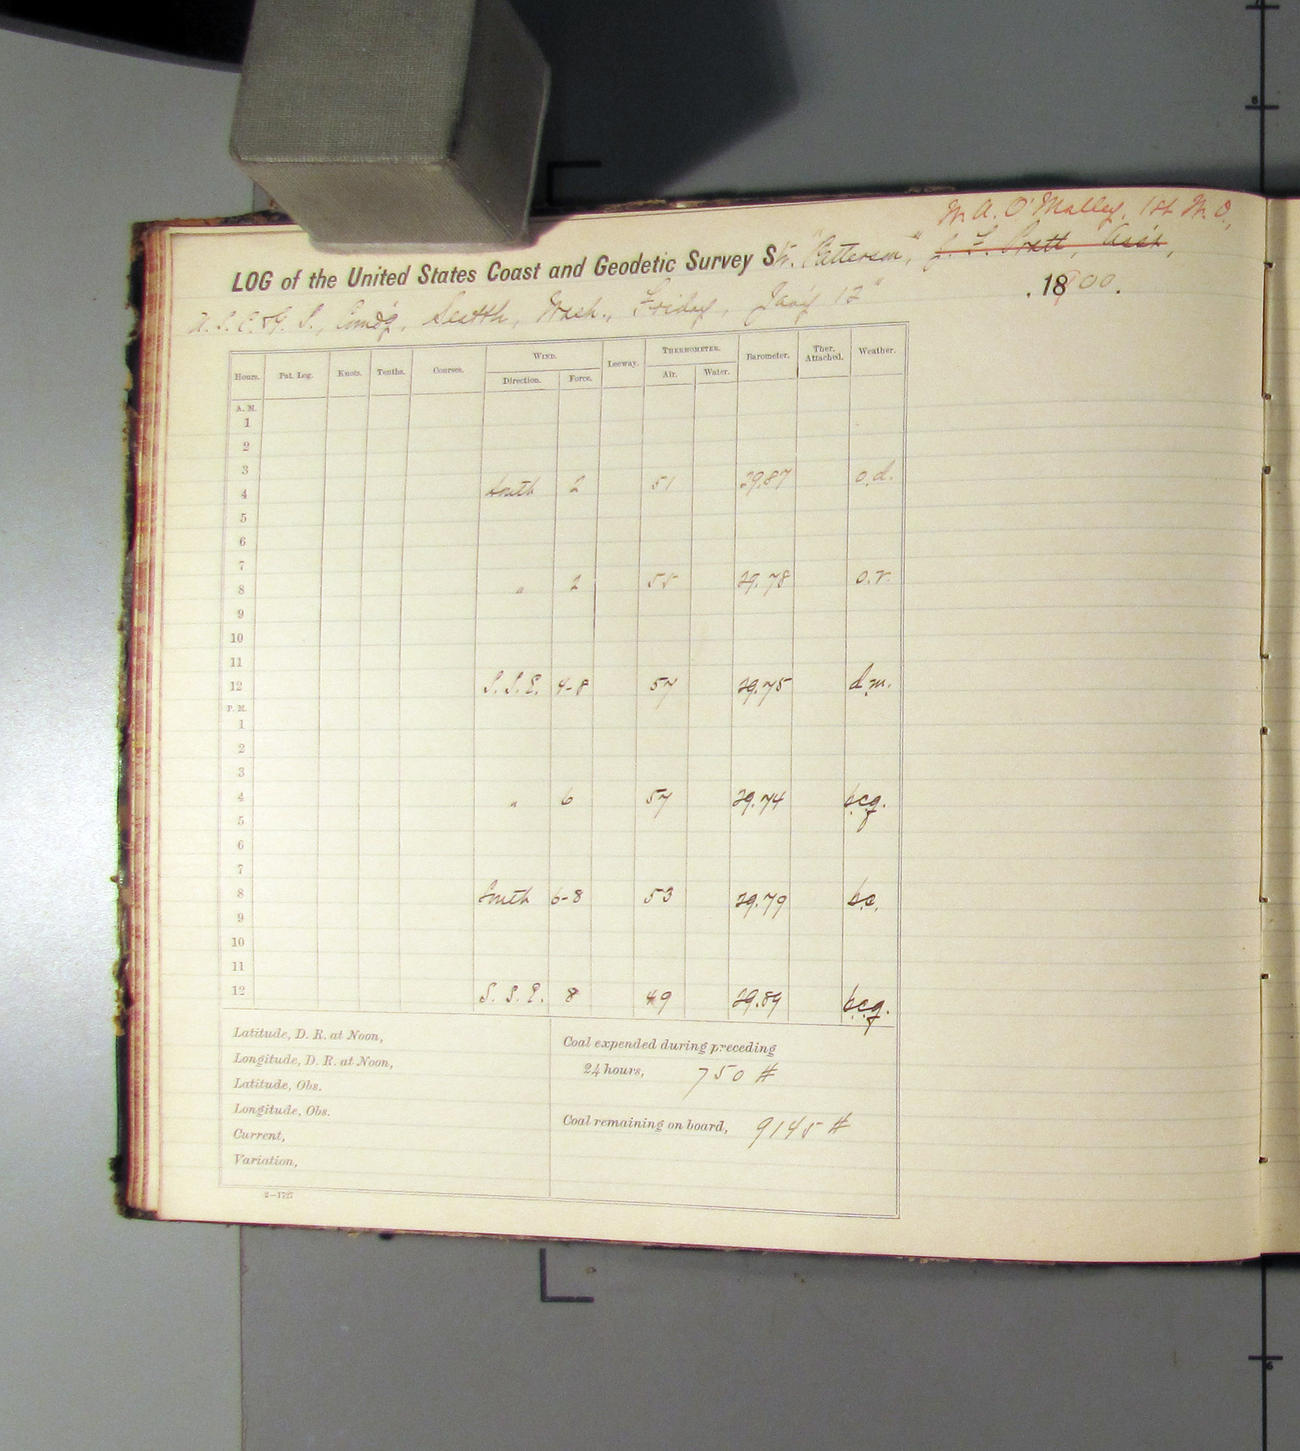 M. A. O'Malley, 1st W. O.,
LOG of the United States Coast and Geodetic Survey Str. "Patterson", J. F. Pratt, Ass't,
U. S. C. & G. S., Comd'g, Seattle, Wash., Friday, Jan'y 12" , 1900.
Hours. Pat. Log. Knots. Tenths. Courses. WIND. Leeway. THERMOMETER. Barometer. Ther. Attached. Weather.
Direction. Force. Air. Water.
A. M.
1
2
3
4 South 2 51 29.87 o.d.
5
6
7
8 " 2 55 29.78 o.r.
9
10
11
12 S.S.E. 4-8 57 29.75 d.m.
P. M.
1
2
3
4 " 6 57 29.74 b.c.q.
5
6
7
8 South 6-8 53 29.79 b.c.
9
10
11
12 S. S. E. 8 49 29.89 b.c.q.
Latitude, D. R. at Noon,
Longitude, D. R. at Noon,
Latitude, Obs.
Longitude, Obs.
Current,
Variation,
Coal expended during preceding
24 hours, 750 #
Coal remaining on board, 9145 #
2—1727
8
6